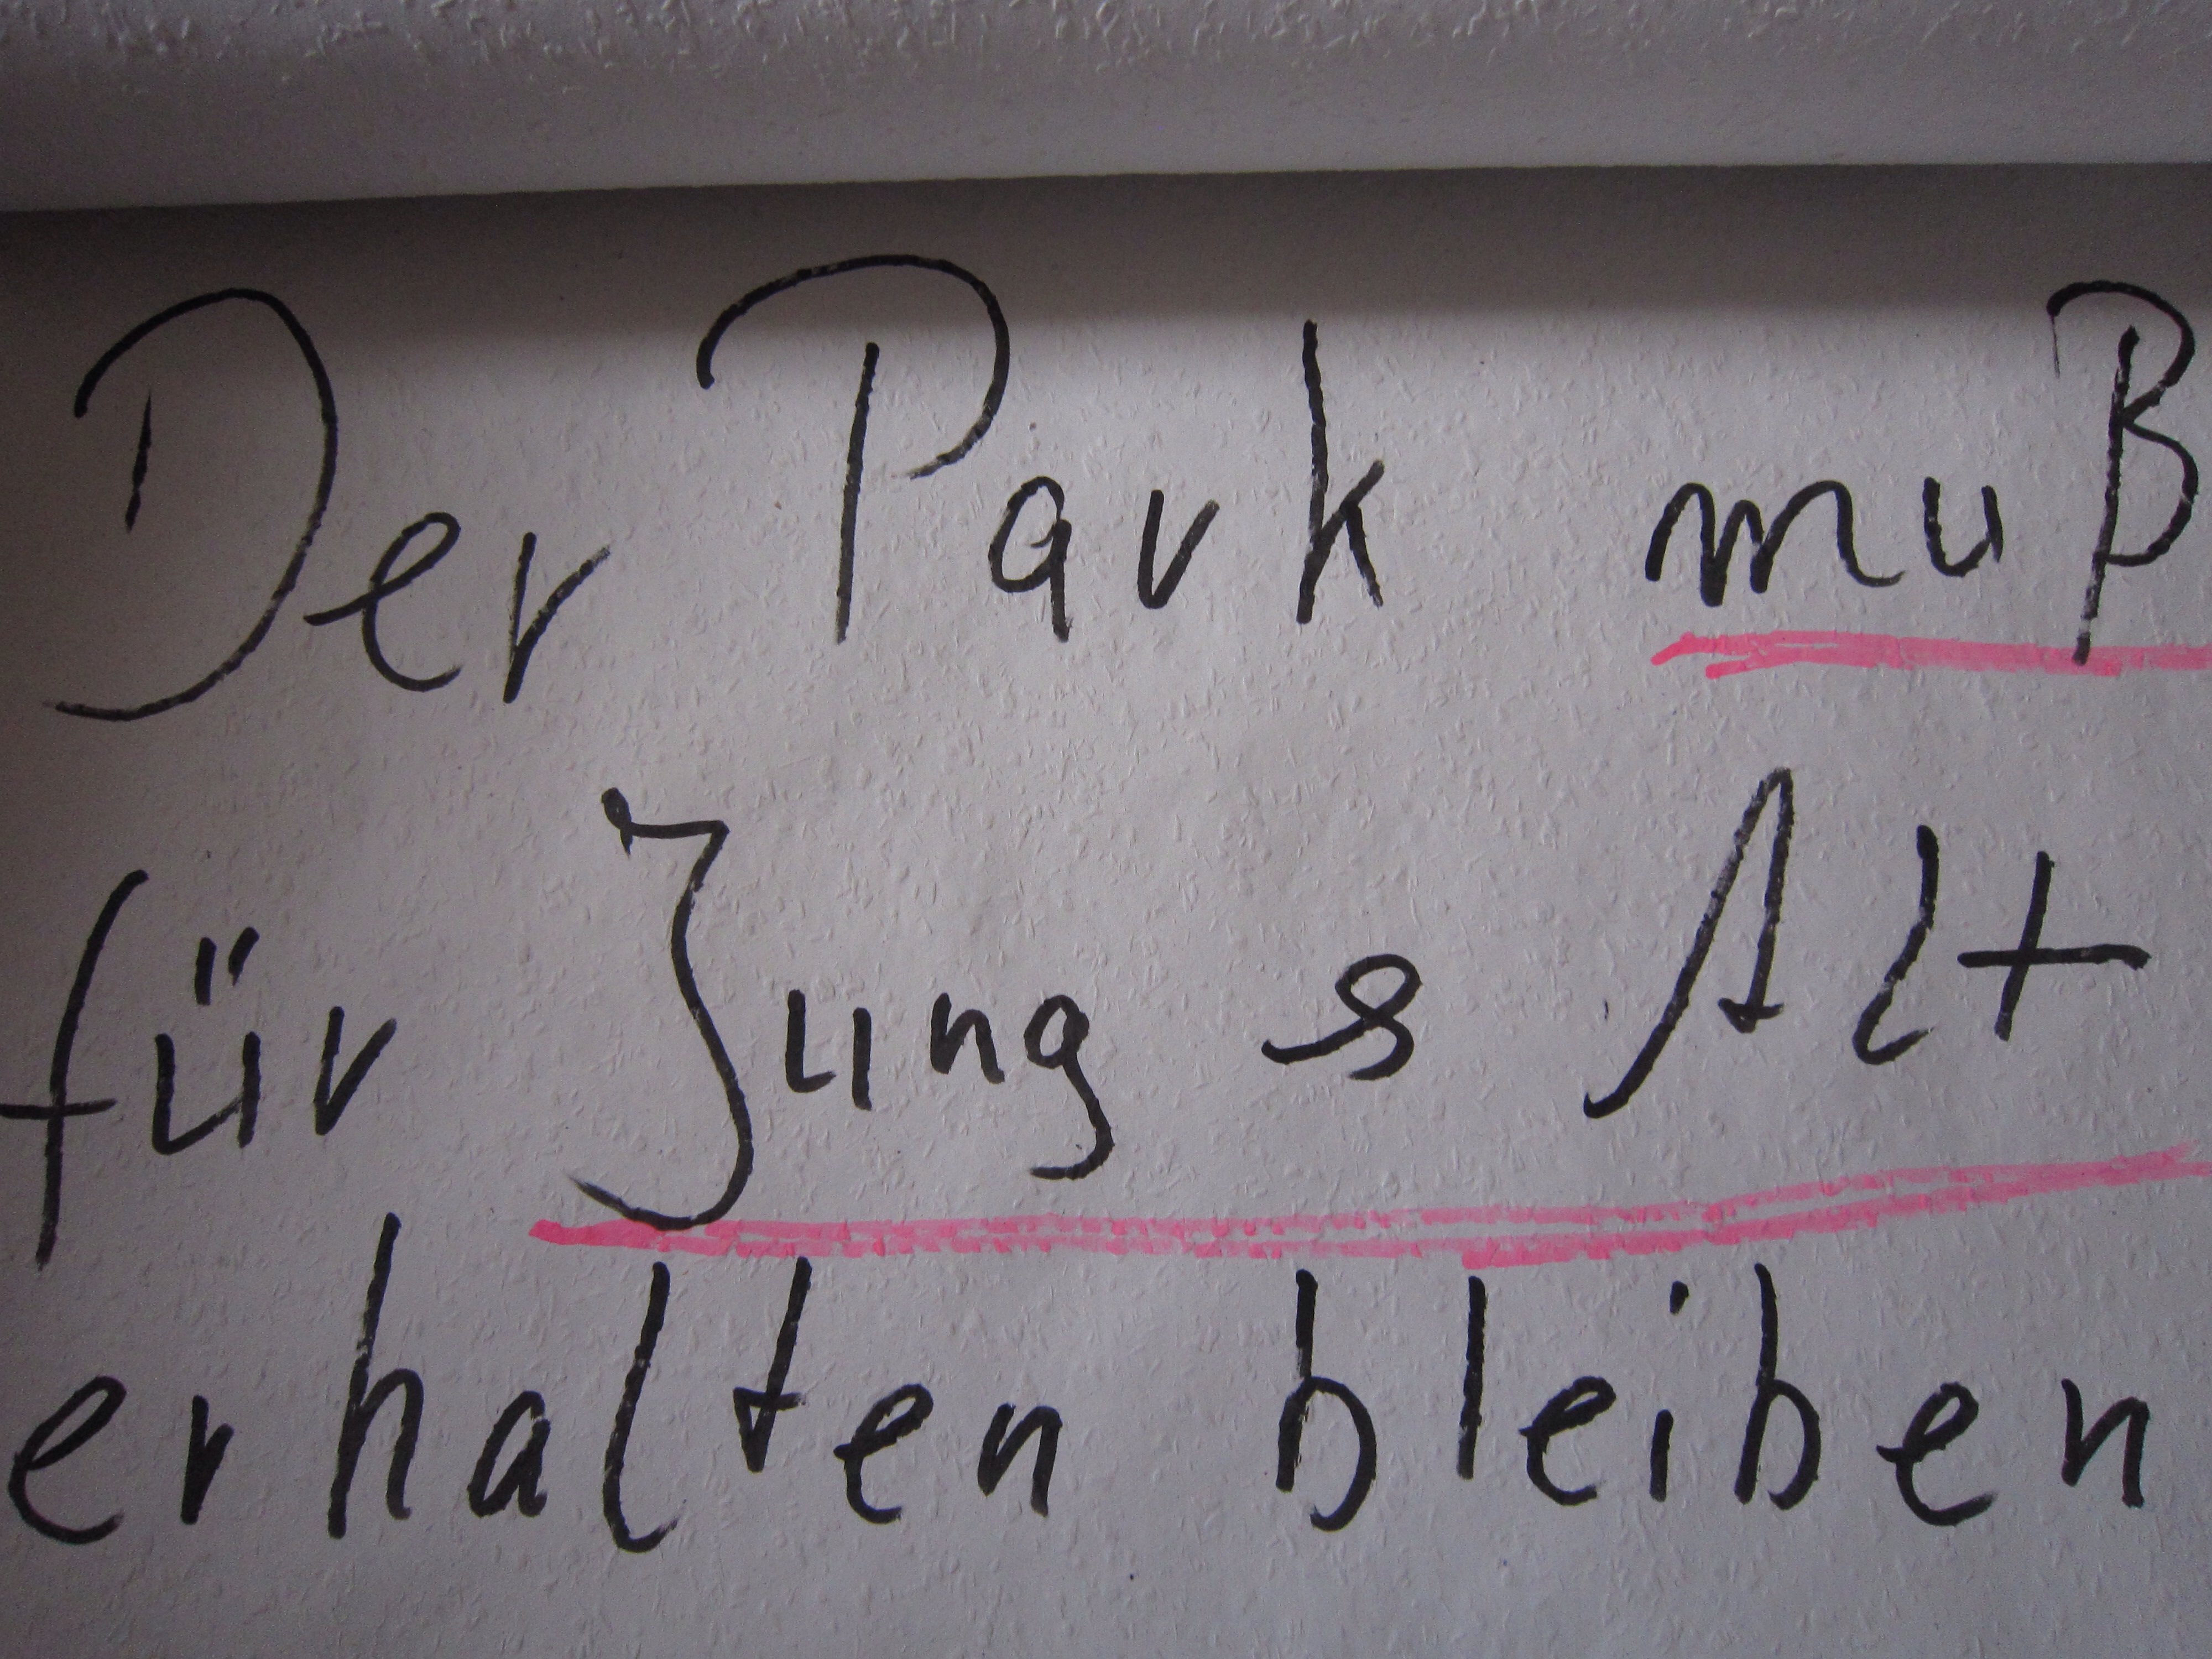 Der Park muß
für Jung & Alt
erhalten bleiben